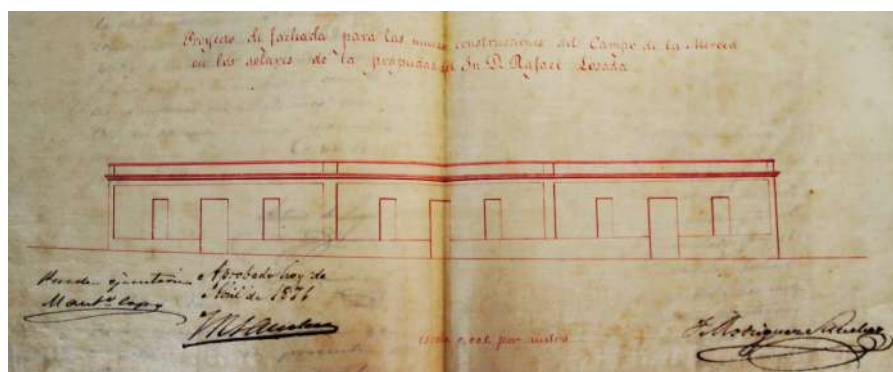 Proyecto de fachada para las nuevas construcciones del Campo de la Merced
en los solares de la propiedad del Sr. D. Rafael Losada
Puede ejecutarse
Aprobado hoy de
Abril de 1876
Escala 0,01 por metro